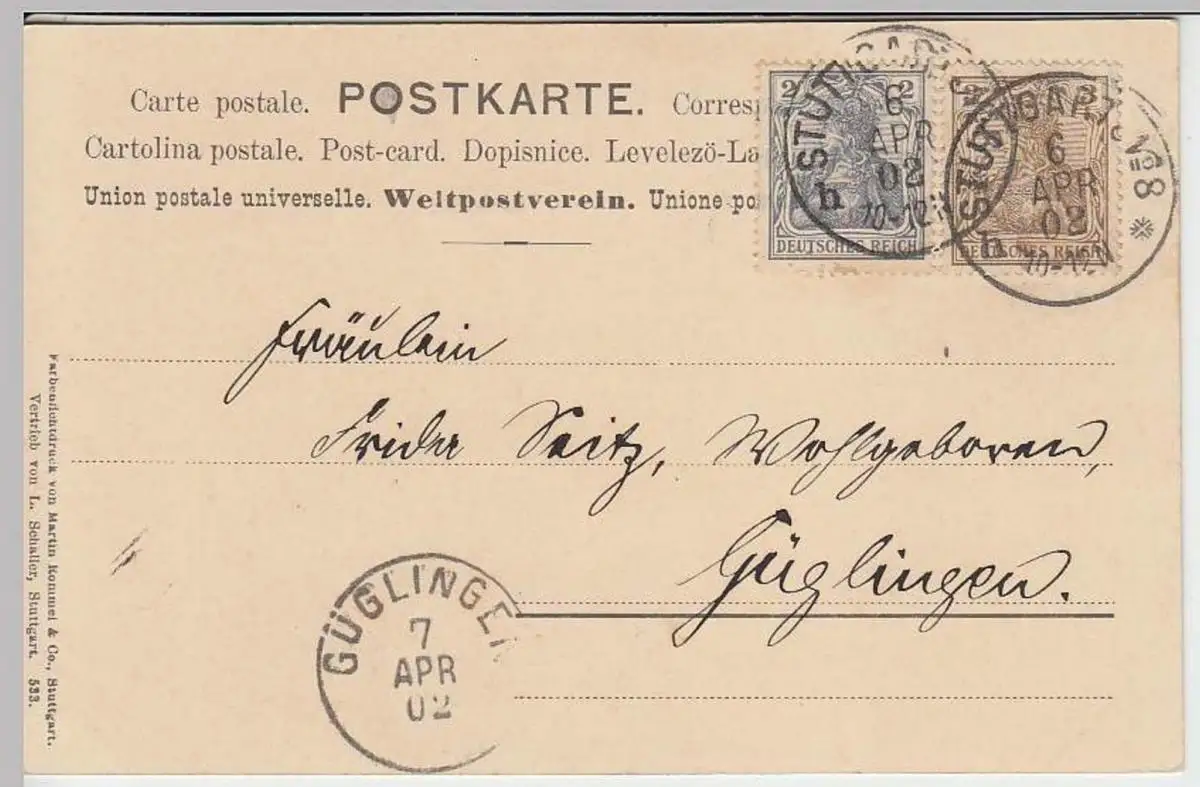 Carte postale. POSTKARTE. Corresp
Cartolina postale. Post-card. Dopisnice. Levelezö-La
Union postale universelle. Weltpostverein. Unione po
2 2
DEUTSCHES REICH
3
DEUTSCHES REICH
STUTTGART
6
APR
02
10-12 V
h
STUTTGART No 8
6
APR
02
10-12 V
h
Fräulein
Frida Seitz, Wohlgeboren,
Güglingen.
GÜGLINGEN
7
APR
02
Farbenlichtdruck von Martin Rommel & Co., Stuttgart.
Vertrieb von L. Schaller, Stuttgart. 533.